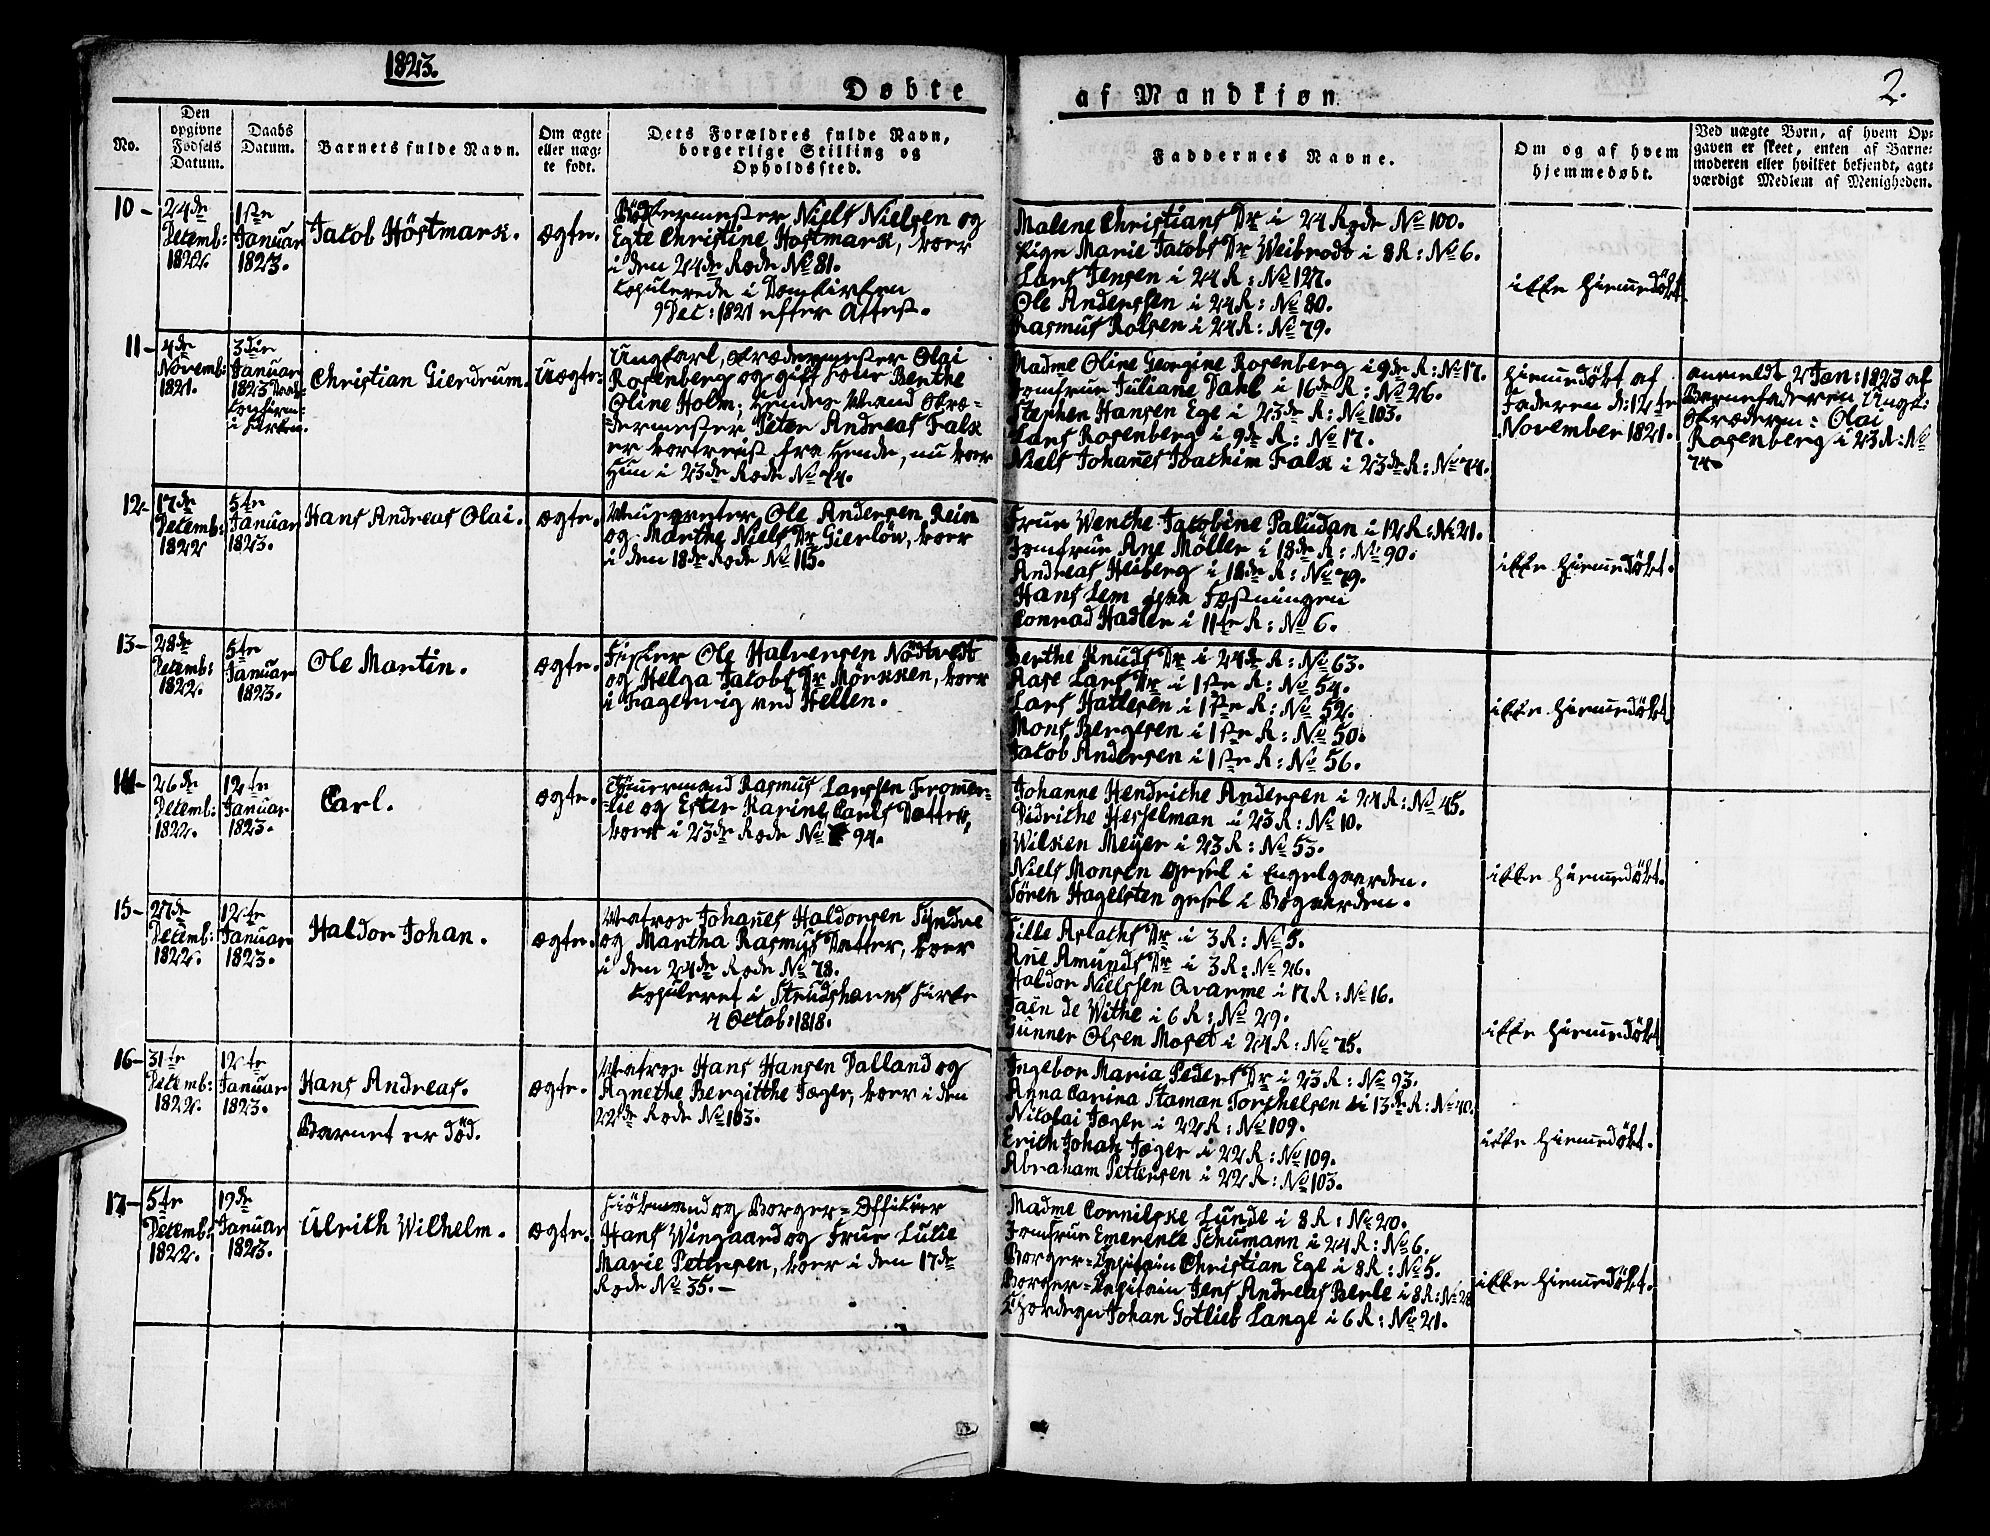 1823.
Döbte
af Mandkjøn.
2.
No.
Den opgivne Fødsels Datum.
Daabs Datum.
Barnets fulde Navn.
Om ægte eller uægte født.
Dets Forældres fulde Navn, borgerlige Stilling og Opholdssted.
Faddernes Navne.
Om og af hvem hjemmedøbt.
Ved uægte Børn, af hvem Opgaven er skeet, enten af Barnemoderen eller hvilket bekjendt, agtværdigt Medlem af Menigheden.
10-
24de
Decemb:
1822.
1ste
Januar
1823.
Jacob Höstmark.
ægte.
Bödkermester Niels Nielsen og
Egte Christine Hostmark, boer
i den 24de Rode No 81.
Copulerede i Domkirken
9 Dec: 1821 efter Attest.
Malene Christians Dr i 24 Rode No 100.
Marie Jacobs Dr Weibrodt i 8 R: No 6.
Lars Jensen i 24 R: No 127.
Ole Anderssen i 24 R: No 80.
Rasmus Rolsen i 24 R: No 79.
ikke hiemmedöbt.
11-
4de
Novemb:
1821.
3die
Januar
1823
Confirm:
i Kirken.
Christian Gierdrum.
Uægte.
Ungkarl,
Olai
Rosenberg og gift Kone Benthe
Oline Holm, hendes Mand
Peter Andreas Falk
er bortreist fra hende, nu boer
Hun i 23de Rode No 74.
Madme Oline Georgine Rosenberg i 9de R: No 17.
Jomfrue Juliane Dahl i 16de R: No 26.
Stephen Hansen Ege i 23de R: No 103.
Hans Rosenberg i 9de R: No 17.
Niels Johanes Joachim Falk i 23de R: No 74.
hiemmedöbt af
Faderen d: 12te
November 1821.
anmeldt 2 Jan: 1823 af
Barnefaderen Ungk:
Olai
Rosenberg i 23 R: No
74.
12-
17de
Decemb:
1822
5te
Januar
1823.
Hans Andreas Olai.
ægte.
Muurmester Ole Andersen Rein
og Marthe Niels Dr Gierlöw, boer
i den 18de Rode No 115.
Frue Wenche Jacobine Paludan i 12 R: No 21.
Jomfrue Ane Möller i 18de R: No 90.
Andreas Heiberg i 18de R: No 79.
Hans Lem paa Fæstningen
Conrad Hadler i 11te R: No 6.
ikke hiemmedöbt.
13-
28de
Decemb:
1822.
5te
Januar
1823.
Ole Martin.
ægte.
Fisker Ole Halversen Nödtvedt
og Helga Jacobs Dr Mörkken, boer
i Fagervig ved Hellen.
Berthe Knuds Dr i 24de R: No 63.
Aase Lars Dr i 1ste R: No 54.
Lars Hatlesen i 1ste R: No 52.
Mons Bergesen i 1ste R: No 50.
Jacob Andersen i 1ste R: No 56.
ikke hiemmedöbt.
14-
26de
Decemb:
1822.
12te
Januar
1823.
Carl.
ægte.
Tömmermand Rasmus Larssen Fromer-
lie og Ester Karine Carls Datter,
boer i 23de Rode No 94.
Johanne Hendriche Andersen i 24 R: No 45.
Didriche Hesselman i 23 R: No 10.
Wilken Meyer i 23 R: No 53.
Niels Monsen Gesel i Engelgaarden.
Sören Hagelsten gesel i Bogaarden.
ikke hiemmedöbt.
15-
27de
Decemb:
1822.
12te
Januar
1823.
Haldor Johan.
ægte.
Matros Johanes Haldorsen Tyndre
og Martha Rasmus Datter, boer
i den 24de Rode No 78.
Copuleret i Steudshavns Kirke
4 Octob: 1818.
Sille Aslachs Dr i 3 R: No 5.
Ane Amunds Dr i 3 R: No 26.
Haldor Nielssen Qvarme i 17 R: No 16.
de Withe i 6 R: No 29.
Gunner Olsen Moset i 24 R: No 75.
ikke hiemmedöbt
16-
31te
Decemb:
1822.
12te
Januar
1823.
Hans Andreas.
Barnet er död.
ægte.
Matros Hans Hansen Dalland og
Agnethe Bergitthe Jæger, boer i den
22de Rode No 103.
Ingebor Maria Peders Dr i 23 R: No 93.
Anna Carina Staman Torchelsen i 13de R: No 40.
Nicolai Jæger i 22 R: No 109.
Erich Johan Jæger i 22 R: No 109.
Abraham Pettersen i 22 R: No 103.
ikke hiemmedöbt.
17-
5te
Decemb:
1822.
19de
Januar
1823.
Ulrich Wilhelm.
ægte.
Kiöbmand og Borger-Officier
Hans Wingaard og Frue Lucie
Marie Petersen, boer i den 17de
Rode No 35.-
Madme Cornilske Lunde i 8 R: No 20.
Jomfrue Emerentse Schumann i 24 R: No 6.
Borger-Capitain Christian Ege i 8 R: No 5.
Borger-Capitain Jens Andreas Berle i 8 R: No 28
Chordegn Johan Gotlieb Lange i 6 R: No 21.
ikke hiemmedöbt.